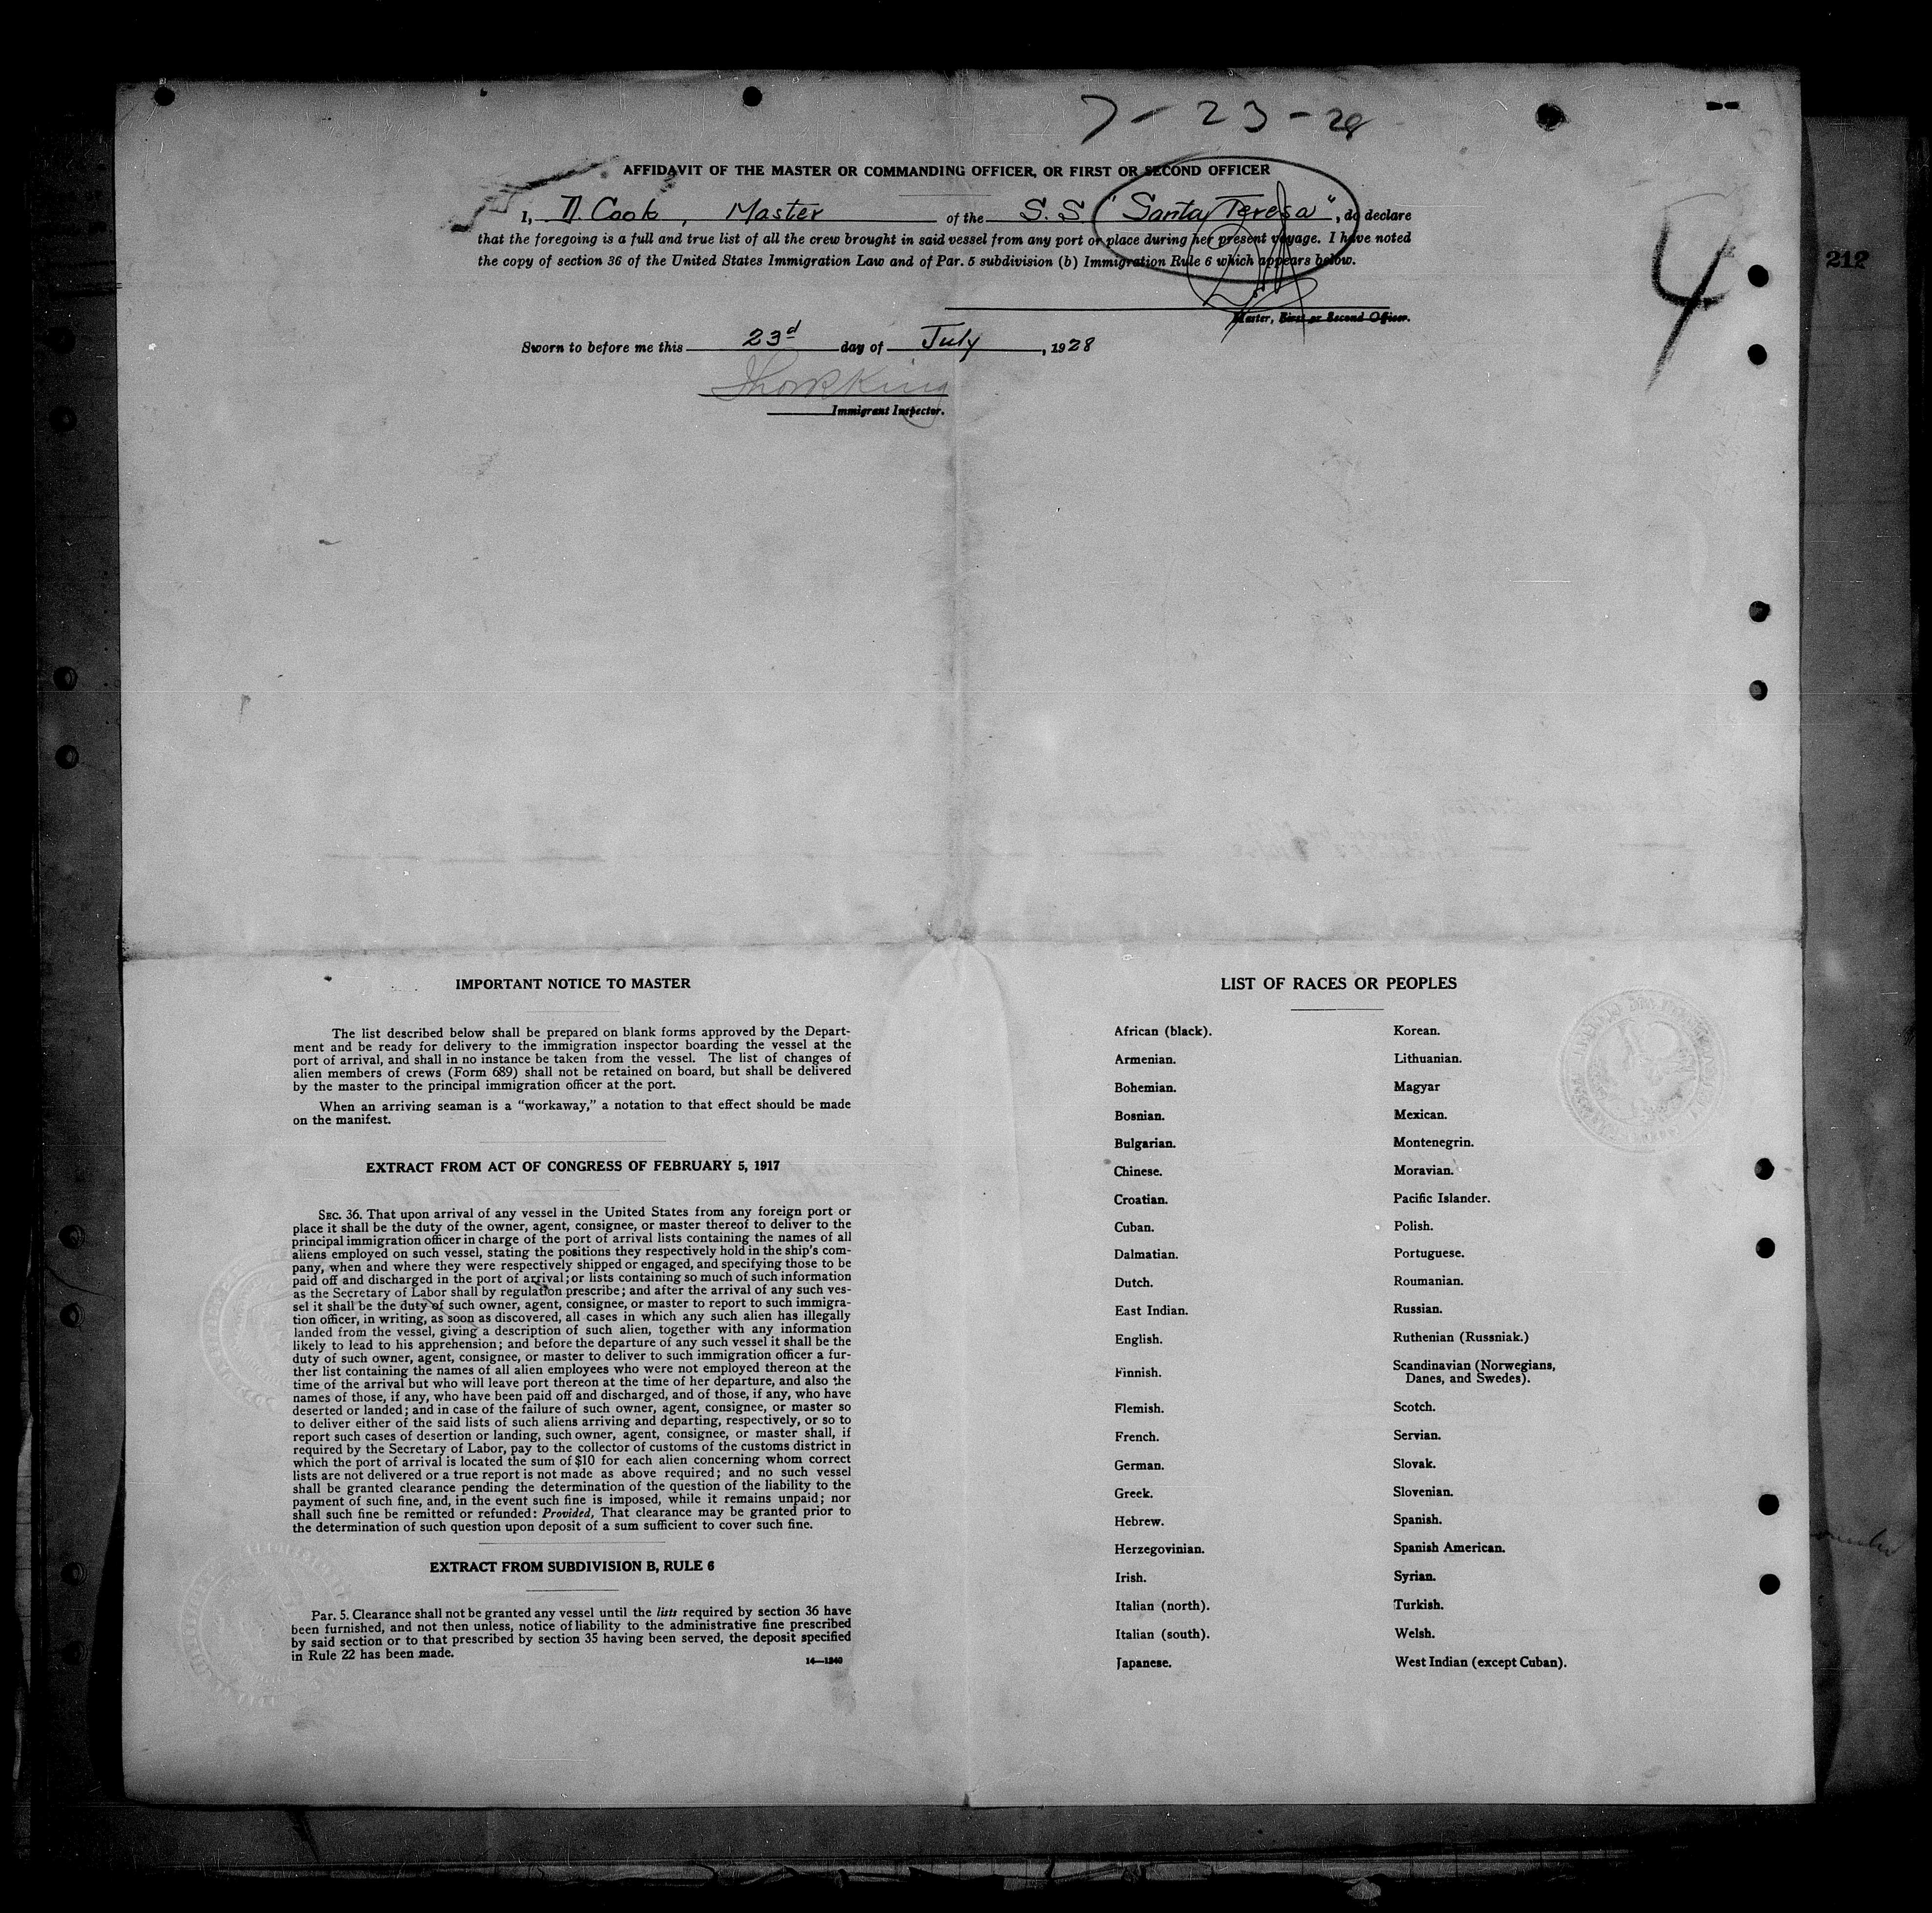 7-23-28
AFFIDAVIT OF THE MASTER OR COMMANDING OFFICER, OR FIRST OR SECOND OFFICER
I, D. Cook, Master of the S.S. "Santa Teresa", do declare
that the foregoing is a full and true list of all the crew brought in said vessel from any port or place during her present voyage. I have noted
the copy of section 36 of the United States Immigration Law and of Par. 5 subdivision (b) Immigration Rule 6 which appears below.
4
212
Master, First or Second Officer.
Sworn to before me this 23d day of July, 1928
Immigrant Inspector.
IMPORTANT NOTICE TO MASTER
The list described below shall be prepared on blank forms approved by the Depart-
ment and be ready for delivery to the immigration inspector boarding the vessel at the
port of arrival, and shall in no instance be taken from the vessel. The list of changes of
alien members of crews (Form 689) shall not be retained on board, but shall be delivered
by the master to the principal immigration officer at the port.
When an arriving seaman is a "workaway," a notation to that effect should be made
on the manifest.
EXTRACT FROM ACT OF CONGRESS OF FEBRUARY 5, 1917
SEC. 36. That upon arrival of any vessel in the United States from any foreign port or
place it shall be the duty of the owner, agent, consignee, or master thereof to deliver to the
principal immigration officer in charge of the port of arrival lists containing the names of all
aliens employed on such vessel, stating the positions they respectively hold in the ship's com-
pany, when and where they were respectively shipped or engaged, and specifying those to be
paid off and discharged in the port of arrival; or lists containing so much of such information
as the Secretary of Labor shall by regulation prescribe; and after the arrival of any such ves-
sel it shall be the duty of such owner, agent, consignee, or master to report to such immigra-
tion officer, in writing, as soon as discovered, all cases in which any such alien has illegally
landed from the vessel, giving a description of such alien, together with any information
likely to lead to his apprehension; and before the departure of any such vessel it shall be the
duty of such owner, agent, consignee, or master to deliver to such immigration officer a fur-
ther list containing the names of all alien employees who were not employed thereon at the
time of the arrival but who will leave port thereon at the time of her departure, and also the
names of those, if any, who have been paid off and discharged, and of those, if any, who have
deserted or landed; and in case of the failure of such owner, agent, consignee, or master so
to deliver either of the said lists of such aliens arriving and departing, respectively, or so to
report such cases of desertion or landing, such owner, agent, consignee, or master shall, if
required by the Secretary of Labor, pay to the collector of customs of the customs district in
which the port of arrival is located the sum of $10 for each alien concerning whom correct
lists are not delivered or a true report is not made as above required; and no such vessel
shall be granted clearance pending the determination of the question of the liability to the
payment of such fine, and, in the event such fine is imposed, while it remains unpaid; nor
shall such fine be remitted or refunded: Provided, That clearance may be granted prior to
the determination of such question upon deposit of a sum sufficient to cover such fine.
EXTRACT FROM SUBDIVISION B, RULE 6
Par. 5. Clearance shall not be granted any vessel until the lists required by section 36 have
been furnished, and not then unless, notice of liability to the administrative fine prescribed
by said section or to that prescribed by section 35 having been served, the deposit specified
in Rule 22 has been made.
14—1240
LIST OF RACES OR PEOPLES
African (black).
Armenian.
Bohemian.
Bosnian.
Bulgarian.
Chinese.
Croatian.
Cuban.
Dalmatian.
Dutch.
East Indian.
English.
Finnish.
Flemish.
French.
German.
Greek.
Hebrew.
Herzegovinian.
Irish.
Italian (north).
Italian (south).
Japanese.
Korean.
Lithuanian.
Magyar
Mexican.
Montenegrin.
Moravian.
Pacific Islander.
Polish.
Portuguese.
Roumanian.
Russian.
Ruthenian (Russniak.)
Scandinavian (Norwegians,
Danes, and Swedes).
Scotch.
Servian.
Slovak.
Slovenian.
Spanish.
Spanish American.
Syrian.
Turkish.
Welsh.
West Indian (except Cuban).